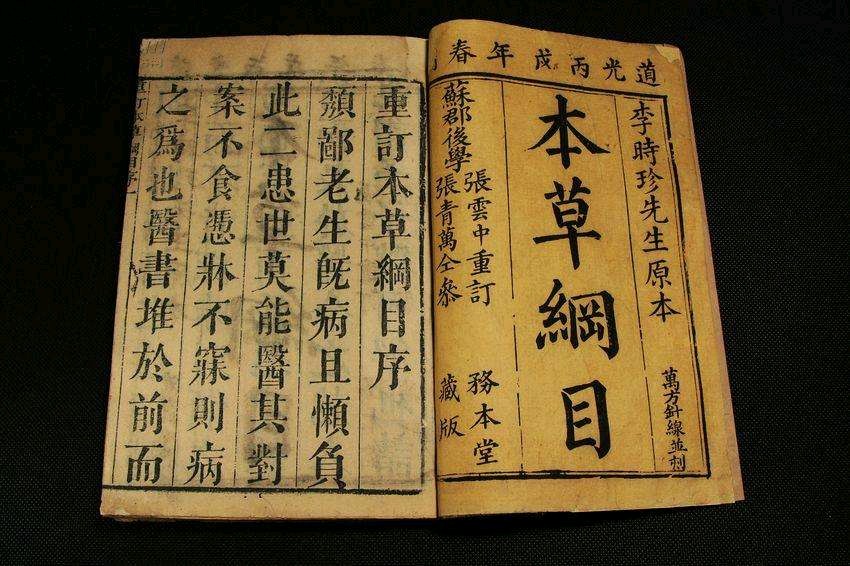 道光丙戌年春
李時珍先生原本
萬方針線並刻
本草綱目
蘇郡後學張雲中重訂
張青萬仝參
務本堂
藏版
重訂本草綱目序
頽鄙老生旣病且懶負
此二患世莫能醫其對
案不食憑牀不寐則病
之爲也醫書堆於前而